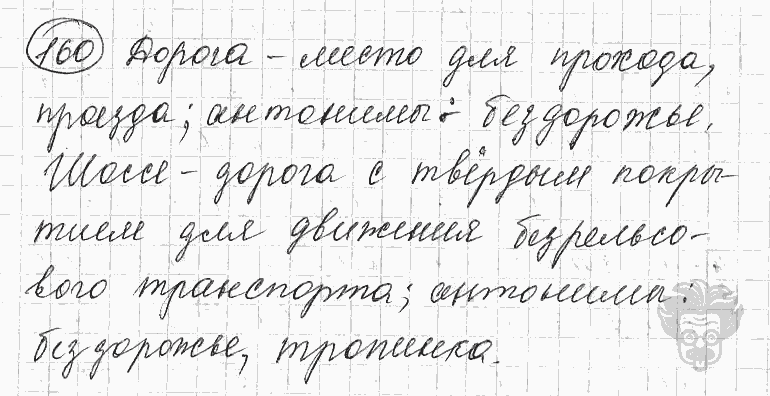 160 Дорога – место для прохода,
проезда; антонимы: бездорожье.
Шоссе – дорога с твёрдым покры-
тием для движения безрельсо-
вого транспорта; антонимы:
бездорожье, тропинка.